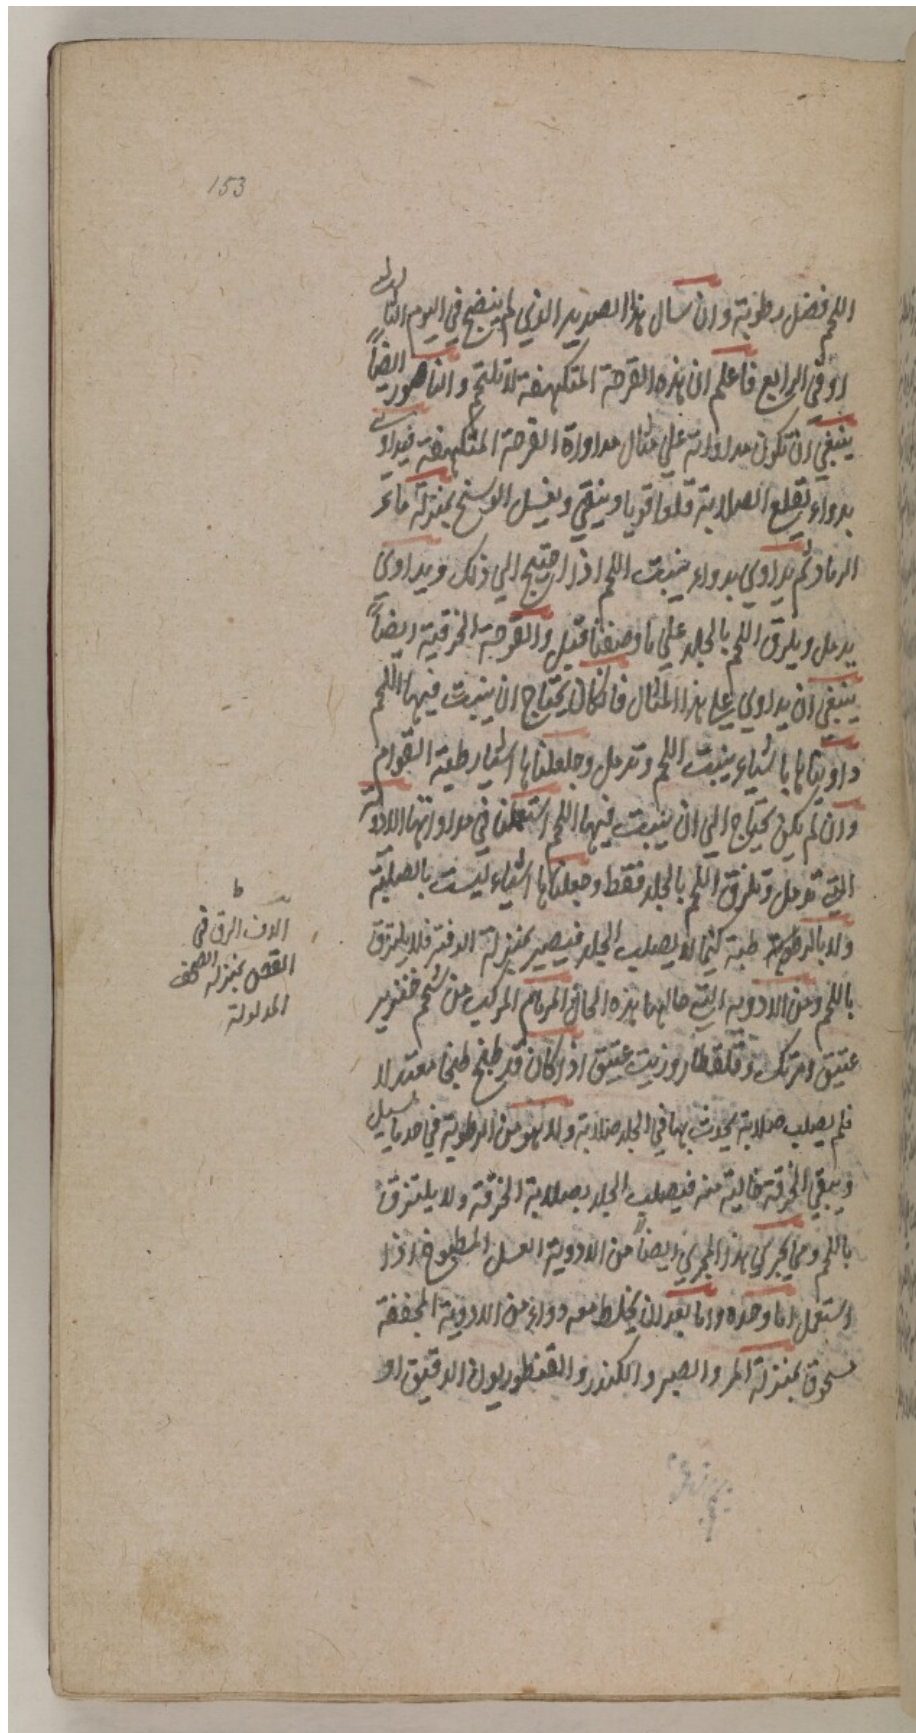 153
اللحم فضل رطوبة وان سال هذا الصديد الذي لم ينضج في اليوم الثالث
او في الرابع فاعلم ان هذه القرحة المتكهفة لا تلتحم والناصور ايضاً
ينبغي ان تكون مداواته علي مثال مداواة القرحة المتكهفة فيداوي
بدواء يقلع الصلابة قلعا قويا وينقي ويغسل الوسخ بمنزلة ماء
الرماد ثم يداوي بدواء ينبت اللحم اذا احتيج الي ذلك ويداوي
يدمل ويلزق اللحم بالجلد علي ما وصفنا قبل والقرحة الخزفية ايضاً
ينبغي ان يداوي علي هذا المثال فان كان يحتاج ان ينبت فيها اللحم
داويناها باشياء ينبت اللحم وتدمل وجعلناها اشياء رطبة القوام
وان لم يكن يحتاج الي ان ينبت فيها اللحم استعملنا في مداواتها الادوية
التي تدمل وتلزق اللحم بالجلد فقط وجعلناها اشياء ليست بالصلبة
ولا بالرطبة كيما لا يصلب الجلد فيصير بمنزلة الدفة فلا يلتزق
باللحم ومن الادوية التي حالها هذه الحال المرهم المركب من شحم خنزير
عتيق ومرتك وقلقطار وزيت عتيق اذا كان قد طبخ طبخا معتدلا
فلم يصلب صلابة يحدث بها في الجلد صلابة ولا هو من الرطوبة في حد ما يسيل
ويبقي الخرقة خالية منه فيصلب الجلد بصلابة الخرقة ولا يلتزق
باللحم ومما يجري هذا المجري ايضاً من الادوية العسل المطبوخ اذا
استعمل اما وحده واما بعد ان يخلط معه دواء من الادوية المجففة
مسحوق بمنزلة المر والصبر والكندر والقنطوريون الدقيق او
ط
الدف الرق في
القص بمنزلة الصحف
المدلولة